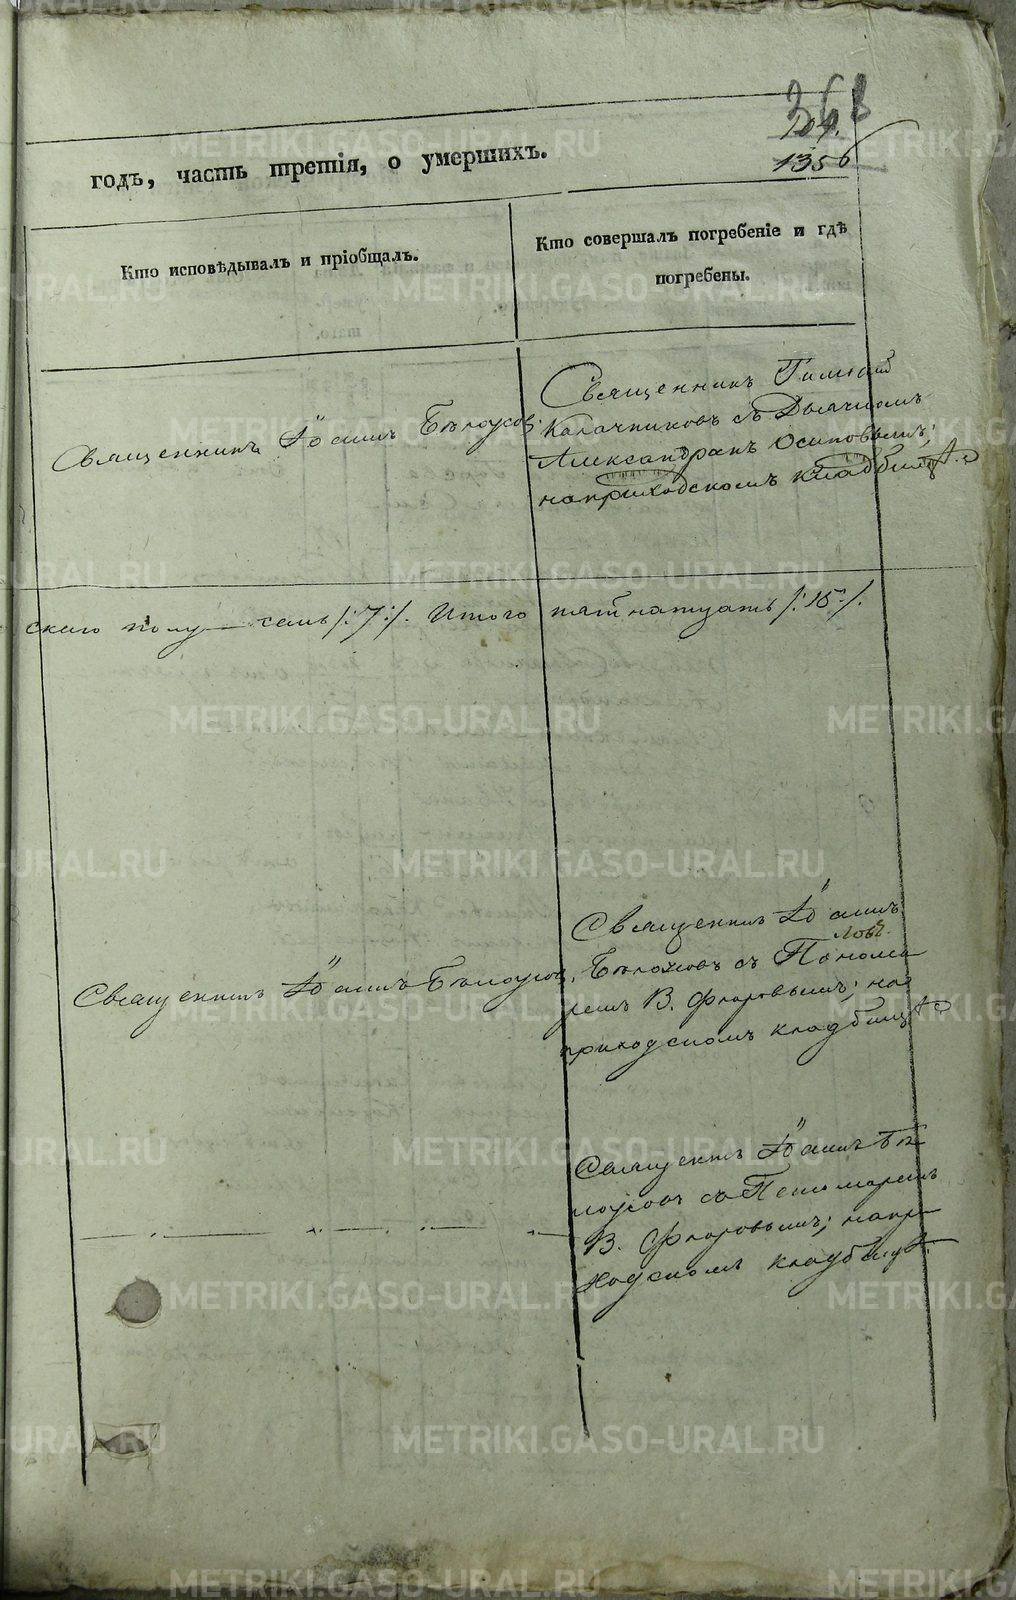 368
104.
1356
годъ, часть третія, о умершихъ.
Кто исповѣдывалъ и пріобщалъ.
Кто совершалъ погребеніе и гдѣ
погребены.
Священникъ Іоаннъ Бѣлоусовъ.
Священникъ Тимофей
Калачниковъ съ Дьячкомъ
Александромъ Осиповымъ;
на приходскомъ кладбищѣ.
скаго полу — семь /:7:/. Итого пятнатцать /:15:/.
Священникъ Іоаннъ Бѣлоусовъ.
Священникъ Іоаннъ
Бѣлоусовъ съ Понома-
ремъ В. Флоровымъ; на
приходскомъ кладбищѣ
Священникъ Іоаннъ Бѣ-
лоусовъ съ Пономаремъ
В. Флоровымъ; на при-
ходскомъ кладбищѣ.
METRIKI.GASO-URAL.RU